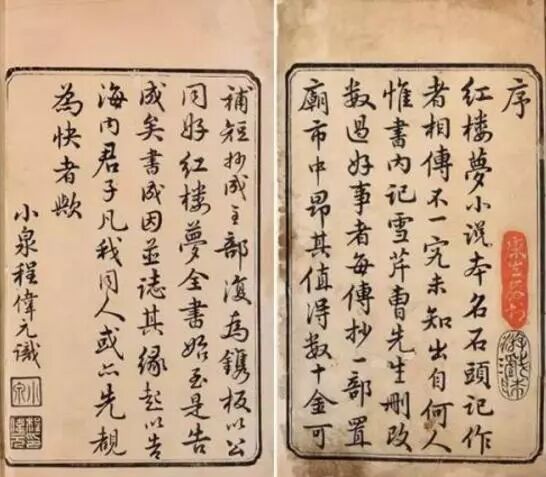 序
红楼夢小说本名石頭记作
者相傳不一究未知出自何人
惟書内记雪芹曹先生刪改
数過好事者每傳抄一部置
廟市中昂其值得数十金可
補短抄成全部復為鐫板以公
同好红楼夢全書始至是告
成矣書成因並誌其緣起以告
海内君子凡我同人或亦先覩
為快者歟
小泉程偉元識
小泉